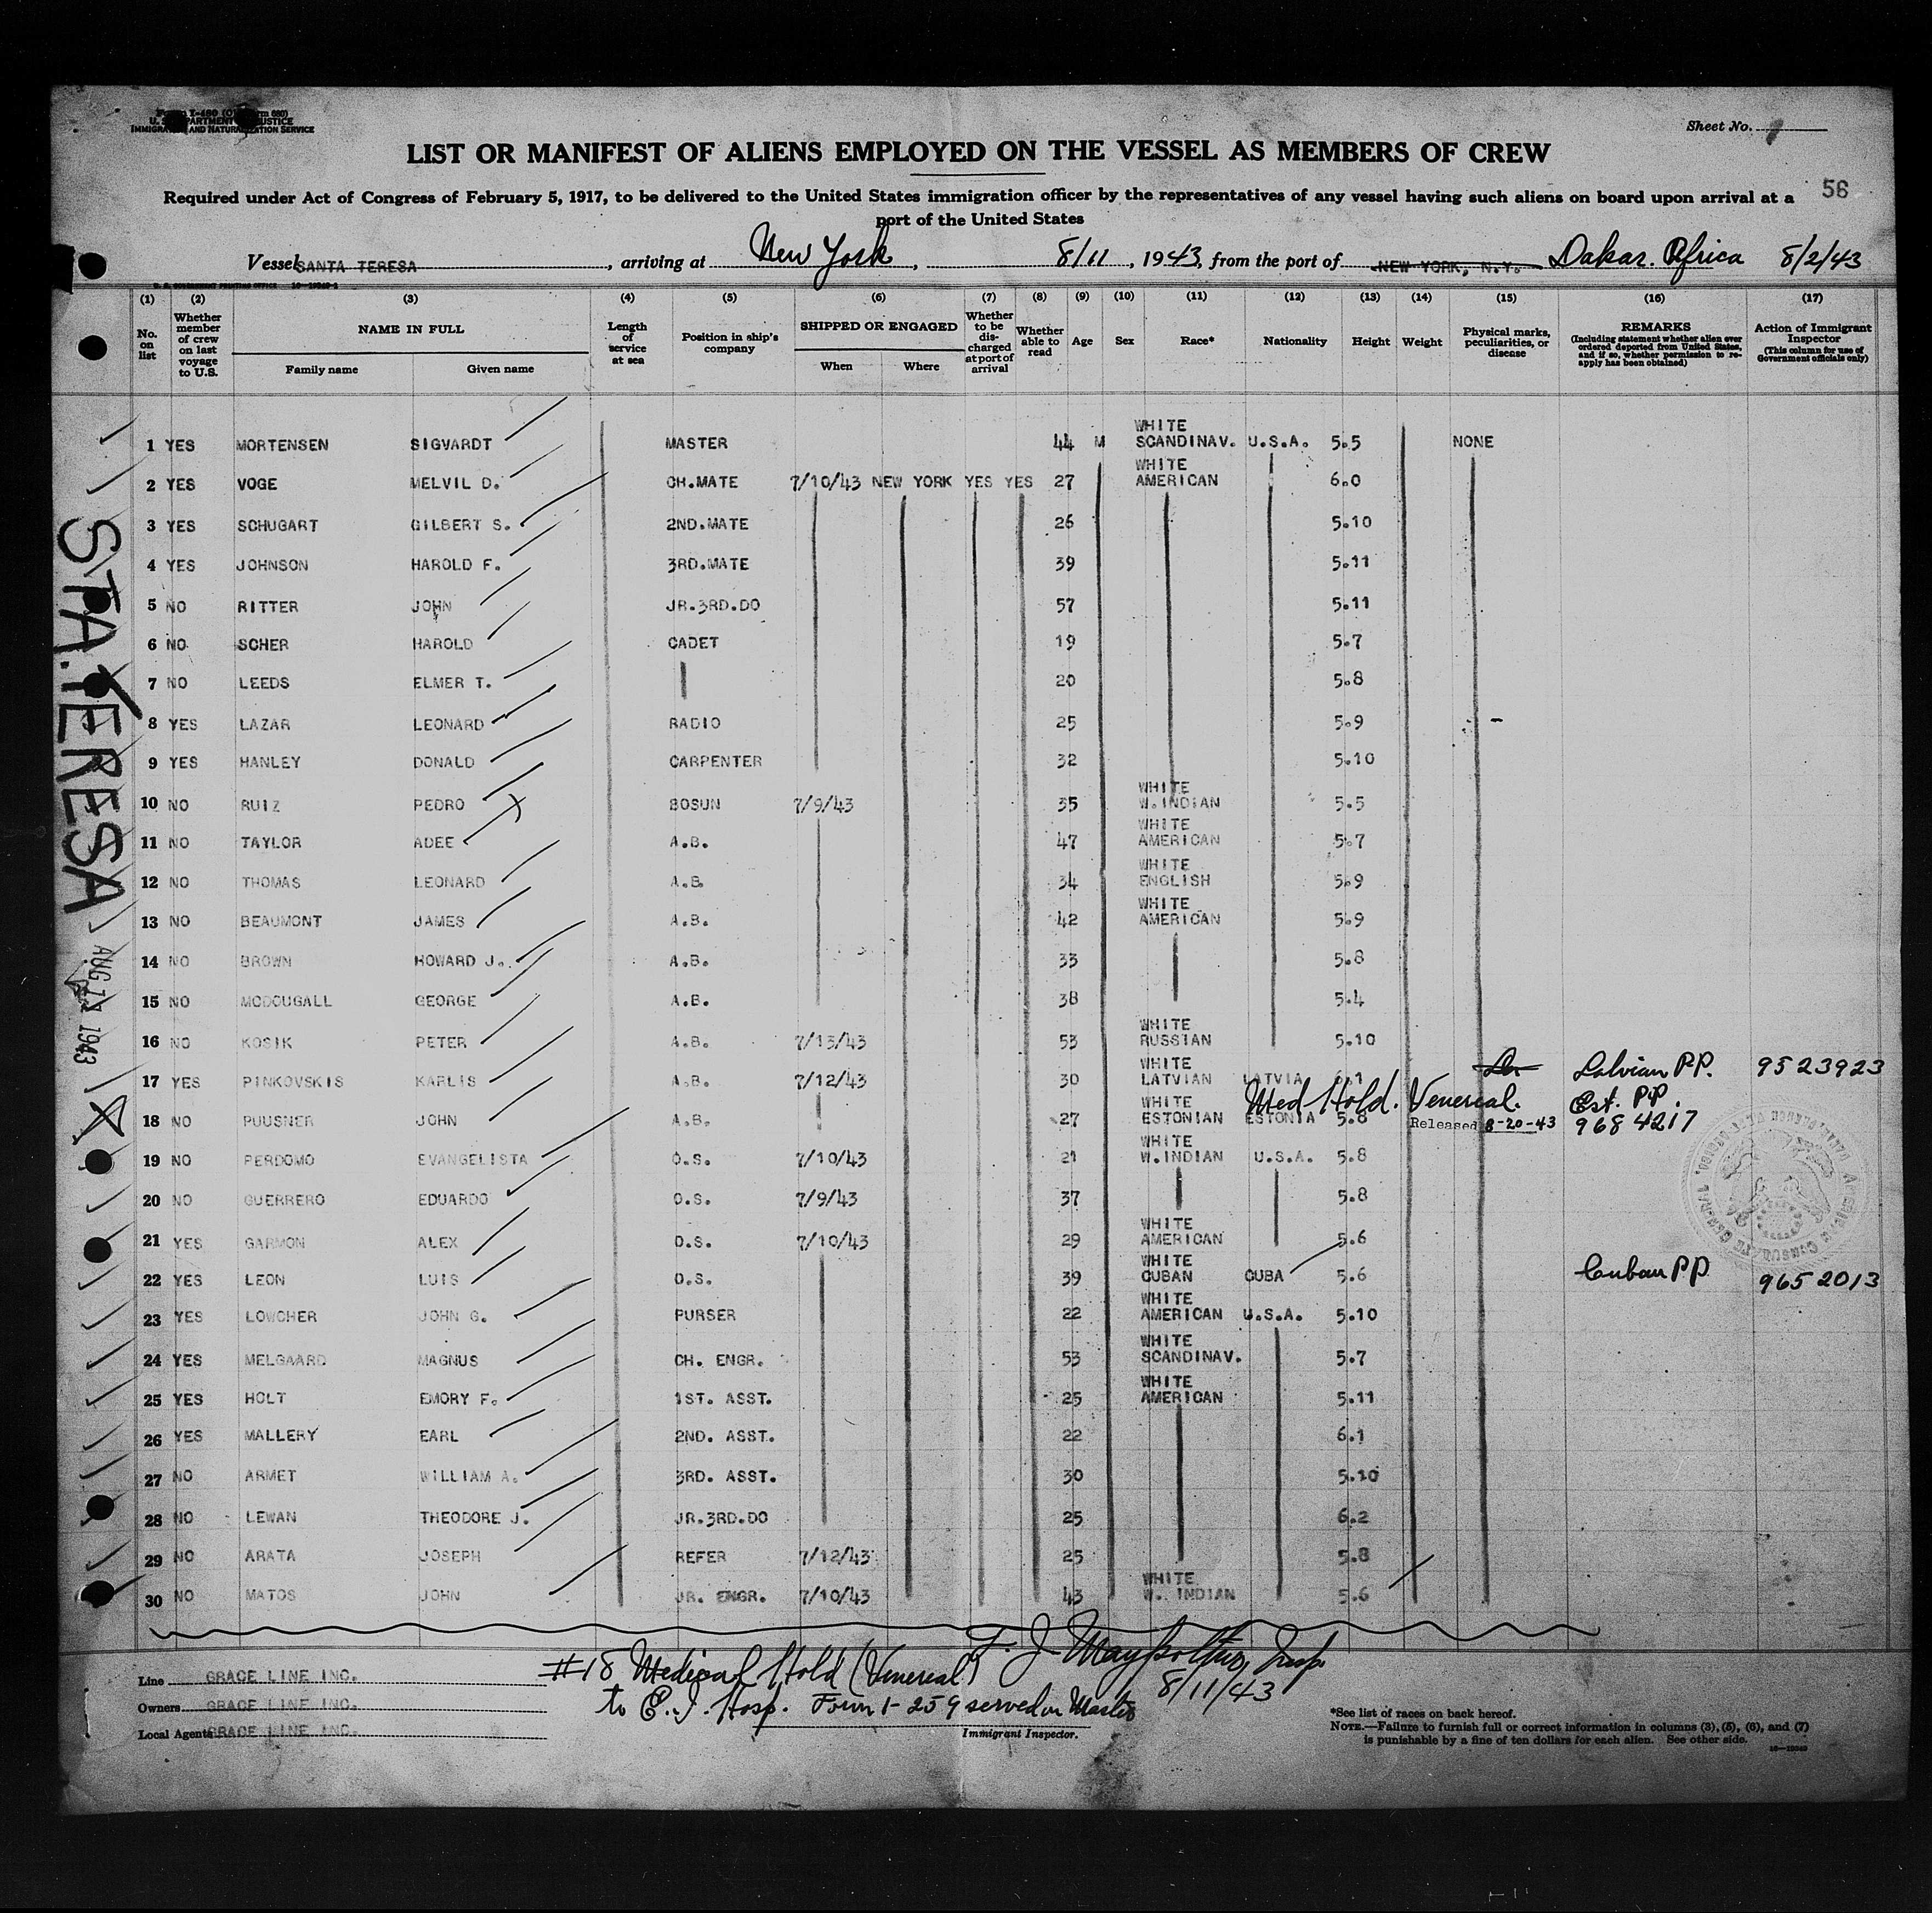 Form I-480
U. S. DEPARTMENT OF JUSTICE
IMMIGRATION AND NATURALIZATION SERVICE
Sheet No.
LIST OR MANIFEST OF ALIENS EMPLOYED ON THE VESSEL AS MEMBERS OF CREW
56
Required under Act of Congress of February 5, 1917, to be delivered to the United States immigration officer by the representatives of any vessel having such aliens on board upon arrival at a
port of the United States
Vessel SANTA TERESA, arriving at New York, 8/11, 1943, from the port of NEW YORK, N.Y. Dakar. Africa 8/2/43
(1) (2) (3) (4) (5) (6) (7) (8) (9) (10) (11) (12) (13) (14) (15) (16) (17)
No. on list
Whether member of crew on last voyage to U.S.
NAME IN FULL
Family name Given name
Length of service at sea
Position in ship's company
SHIPPED OR ENGAGED
When Where
Whether to be discharged at port of arrival
Whether able to read
Age Sex Race* Nationality Height Weight
Physical marks, peculiarities, or disease
REMARKS
(Including statement whether alien ever ordered deported from United States, and if so, whether permission to reapply has been obtained)
Action of Immigrant Inspector
(This column for use of Government officials only)
1 YES MORTENSEN SIGVARDT MASTER 44 M WHITE SCANDINAV. U.S.A. 5.5 NONE
2 YES VOGE MELVIL D. CH.MATE 7/10/43 NEW YORK YES YES 27 WHITE AMERICAN 6.0
3 YES SCHUGART GILBERT S. 2ND.MATE 26 5.10
4 YES JOHNSON HAROLD F. 3RD.MATE 39 5.11
5 NO RITTER JOHN JR.3RD.DO 57 5.11
6 NO SCHER HAROLD CADET 19 5.7
7 NO LEEDS ELMER T. 20 5.8
8 YES LAZAR LEONARD RADIO 25 5.9
9 YES HANLEY DONALD CARPENTER 32 5.10
10 NO RUIZ PEDRO BOSUN 7/9/43 35 WHITE W.INDIAN 5.5
11 NO TAYLOR ADEE A.B. 47 WHITE AMERICAN 5.7
12 NO THOMAS LEONARD A.B. 34 WHITE ENGLISH 5.9
13 NO BEAUMONT JAMES A.B. 42 WHITE AMERICAN 5.9
14 NO BROWN HOWARD J. A.B. 33 5.8
15 NO MCDOUGALL GEORGE A.B. 38 5.4
16 NO KOSIK PETER A.B. 7/13/43 53 WHITE RUSSIAN 5.10
17 YES PINKOVSKIS KARLIS A.B. 7/12/43 30 WHITE LATVIAN LATVIA 6.1 Latvian P.P. 9523923
18 NO PUUSNER JOHN A.B. 27 WHITE ESTONIAN ESTONIA 5.8 Med Hold. Venereal. Released 8-20-43 Est. P.P. 968 4217
19 NO PERDOMO EVANGELISTA O.S. 7/10/43 21 WHITE W.INDIAN U.S.A. 5.8
20 NO GUERRERO EDUARDO O.S. 7/9/43 37 5.8
21 YES GARMON ALEX O.S. 7/10/43 29 WHITE AMERICAN 5.6
22 YES LEON LUIS O.S. 39 WHITE CUBAN CUBA 5.6 Cuban PP 965 2013
23 YES LOWCHER JOHN G. PURSER 22 WHITE AMERICAN U.S.A. 5.10
24 YES MELGAARD MAGNUS CH. ENGR. 53 WHITE SCANDINAV. 5.7
25 YES HOLT EMORY F. 1ST. ASST. 25 WHITE AMERICAN 5.11
26 YES MALLERY EARL 2ND. ASST. 22 6.1
27 NO ARMET WILLIAM A. 3RD. ASST. 30 5.10
28 NO LEWAN THEODORE J. JR.3RD.DO 25 6.2
29 NO ARATA JOSEPH REFER 7/12/43 25 5.8
30 NO MATOS JOHN JR. ENGR. 7/10/43 43 WHITE W. INDIAN 5.6
STA. TERESA
AUG 1943
AMERICAN CONSULATE GENERAL
Line GRACE LINE INC.
Owners GRACE LINE INC.
Local Agents GRACE LINE INC.
#18 Medical Hold (Venereal)
to E. I. Hosp. Form I-259 served on Master
8/11/43
Immigrant Inspector.
*See list of races on back hereof.
NOTE.—Failure to furnish full or correct information in columns (3), (5), (6), and (7)
is punishable by a fine of ten dollars for each alien. See other side.